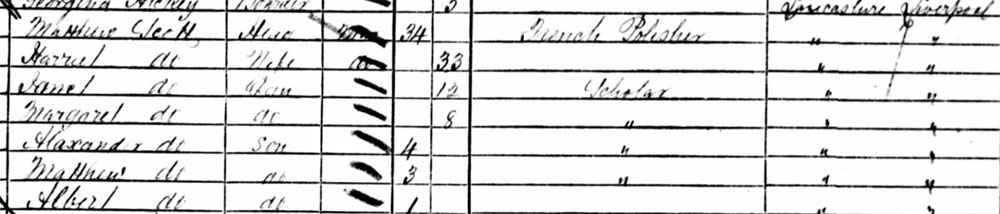 Georgina 5 Lancashire Liverpool
Matthew Head 34 French Polisher " "
Harriet do Wife do 33 " "
Janet do 12 Scholar " "
Margaret do do 8 " " "
Alaxander do Son 4 " " "
Matthew do do 3 " " "
Albert do do 1 " "